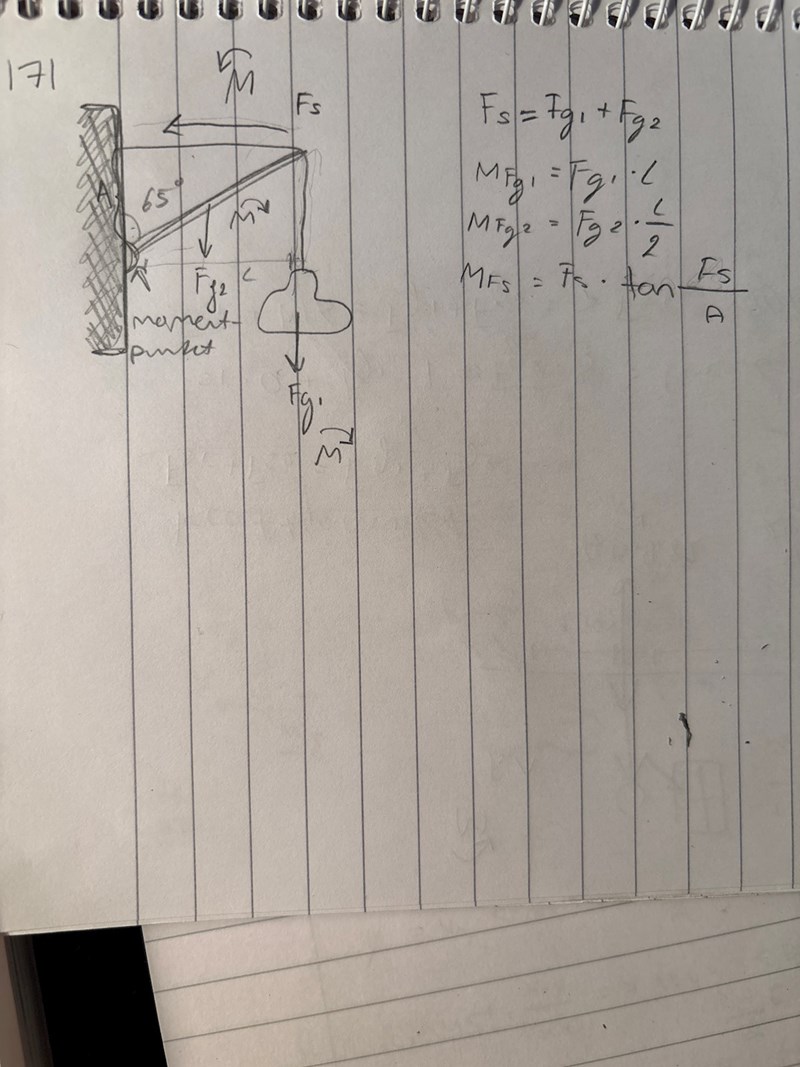 171
M
Fs
A
65°
M
L
Fg2
moment-
punkt
Fg1
M
Fs = Fg1 + Fg2
MFg1 = Fg1 · L
MFg2 = Fg2 · L/2
MFs = Fs · tan Fs/A